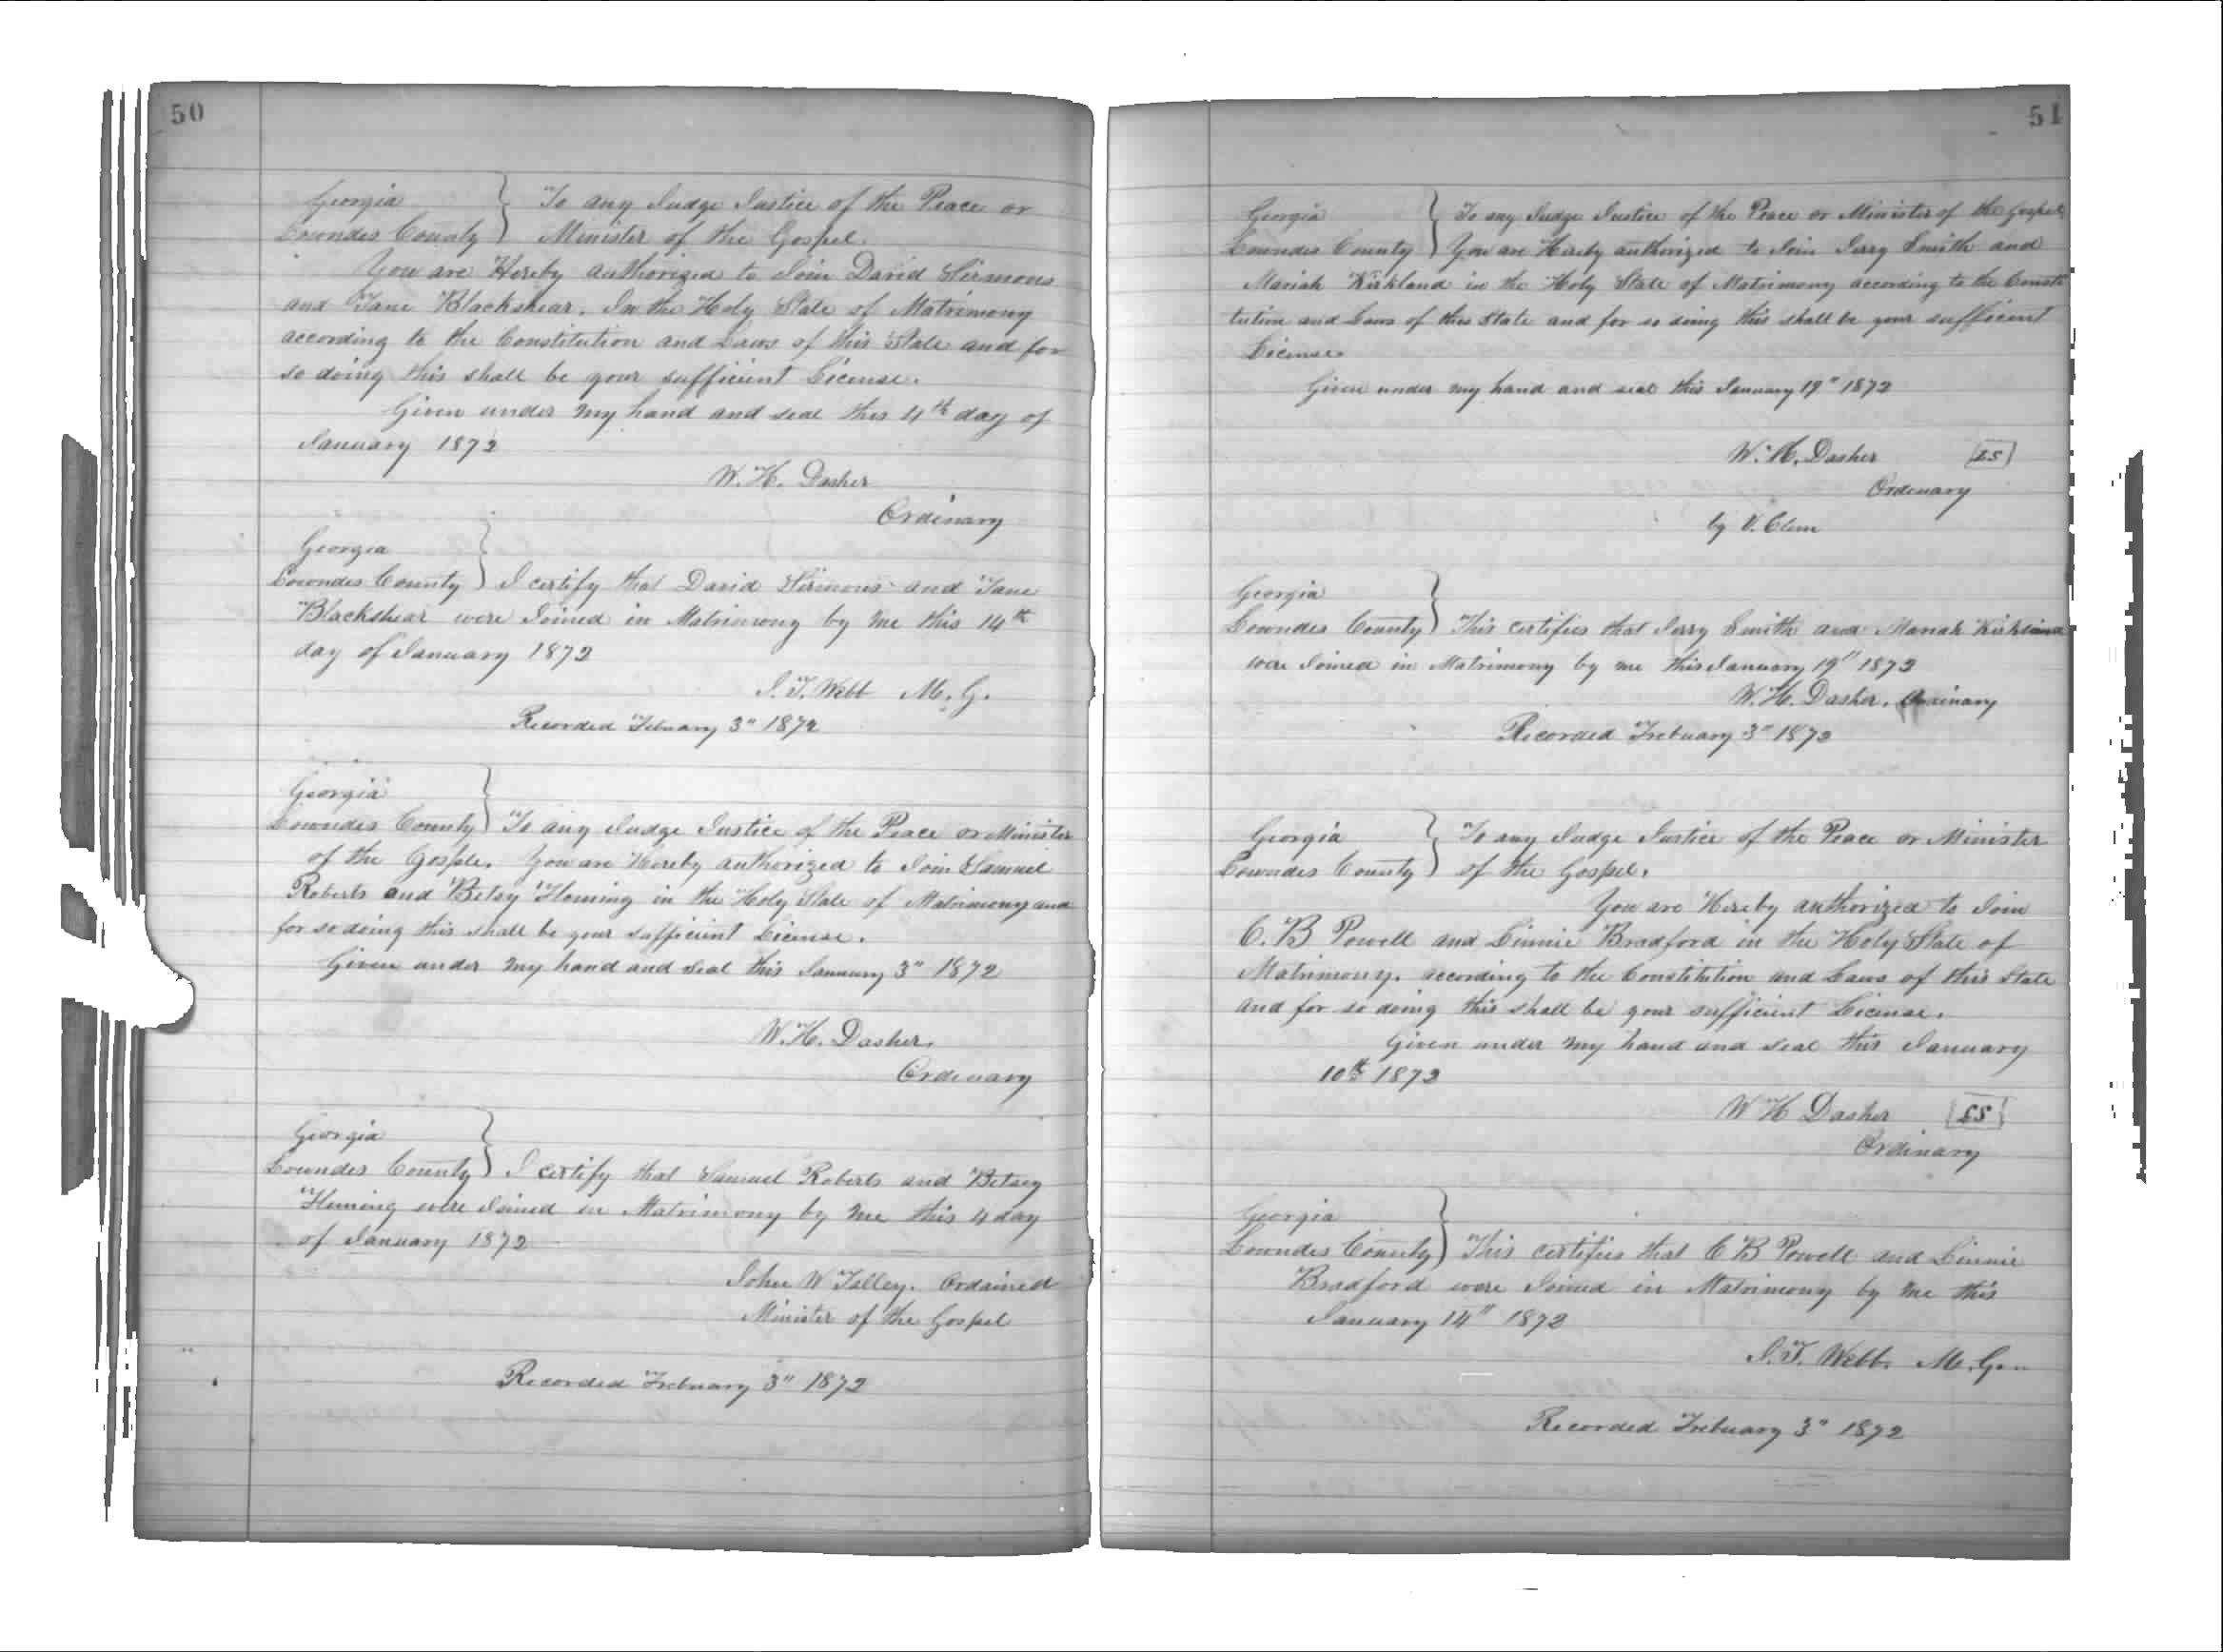 50
Georgia } To any Judge Justice of the Peace or
Lowndes County } Minister of the Gospel.
You are Hereby authorized to Join David Sirmons
and Jane Blackshear. In the Holy State of Matrimony
according to the Constitution and Laws of this State and for
so doing this shall be your sufficient License.
Given under my hand and seal this 4th day of
January 1872
W. H. Dasher
Ordinary
Georgia }
Lowndes County } I certify that David Sirmons and Jane
Blackshear were Joined in Matrimony by me this 14th
day of January 1872
J. T. Webb M. G.
Recorded Febuary 3" 1872
Georgia }
Lowndes County } To any Judge Justice of the Peace or Minister
of the Gosple. You are Hereby authorized to Join Samuel
Roberts and Betsy Fleming in the Holy State of Matrimony and
for so doing this shall be your sufficient License.
Given under my hand and seal this January 3" 1872
W. H. Dasher.
Ordinary
Georgia }
Lowndes County } I certify that Samuel Roberts and Betsey
Fleming were Joined in Matrimony by me this 4 day
of January 1872
John W Talley. Ordained
Minister of the Gospel
Recorded Frebuary 3" 1872
51
Georgia } To any Judge Justice of the Peace or Minister of the Gospel
Lowndes County } You are Hereby authorized to Join Jerry Smith and
Mariah Kirkland in the Holy State of Matrimony according to the Consti
tution and Laws of this State and for so doing this shall be your sufficient
License
Given under my hand and seal this January 19" 1872
W. H. Dasher [LS]
Ordinary
by V. Clem
Georgia }
Lowndes County } This certifies that Jerry Smith and Mariah Kirkland
were Joined in Matrimony by me this January 19" 1872
W. H. Dasher. Ordinary
Recorded Frebuary 3" 1872
Georgia } To any Judge Justice of the Peace or Minister
Lowndes County } of the Gospel.
You are Hereby authorized to Join
C. B Powell and Linnie Bradford in the Holy State of
Matrimony. according to the Constitution and Laws of this State
and for so doing this shall be your sufficient License.
Given under my hand and seal this January
10th 1872
W H Dasher [LS]
Ordinary
Georgia }
Lowndes County } This certifies that C B Powell and Linnie
Bradford were Joined in Matrimony by me this
January 14" 1872
J. T. Webb. M. G.
Recorded Frebuary 3" 1872